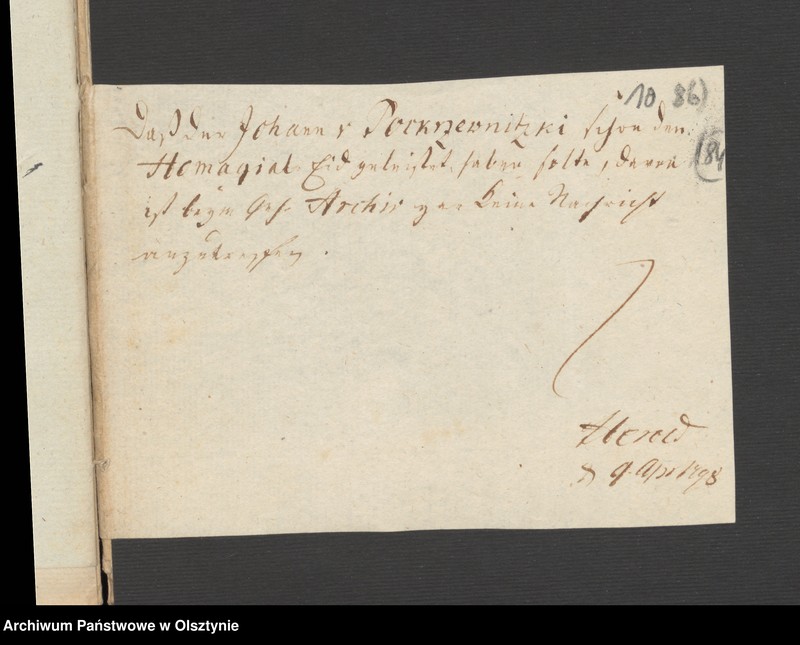 10 86)
Daß der Johann v Pockrzewnitzki schon den
184
Homagial Eid geleistet haben solte, davon
ist beym Geh. Archiv gar keine Nachricht
anzutreffen.
d 9. Apr 1798
Archiwum Państwowe w Olsztynie